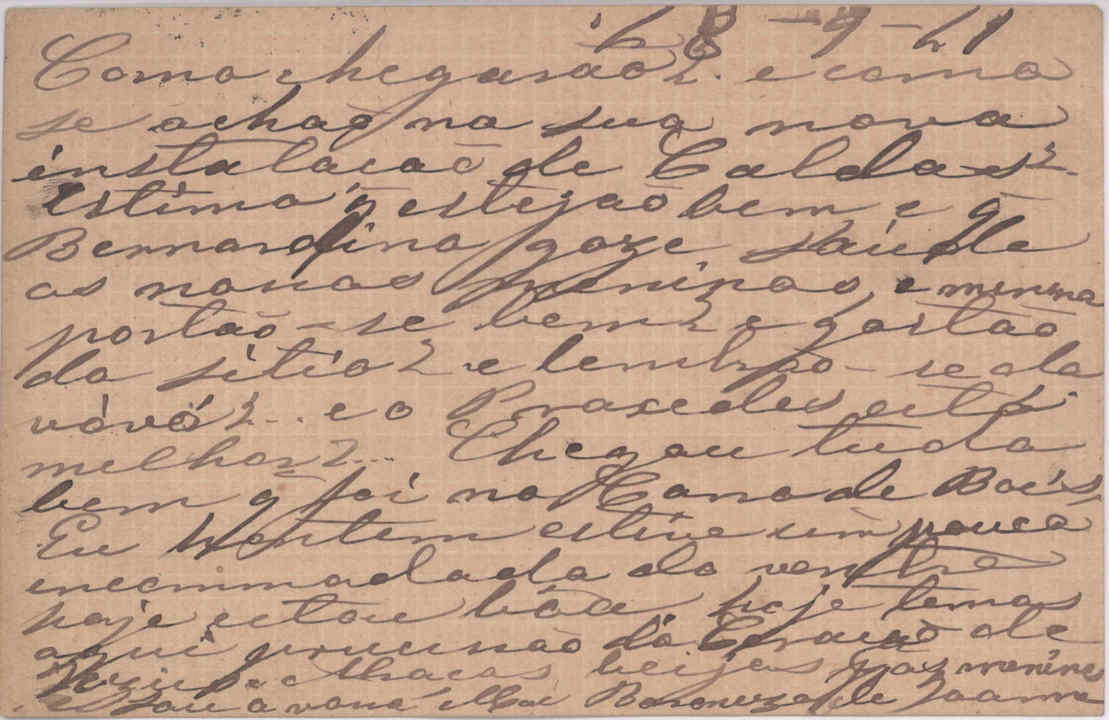 Como chegarão? e como
se achaõ na sua nova
instalacaõ de Caldas?
Estimo q̃ estejaõ bem e q̃
Bernardina goze saúde
as meninas, e menina
portão-se bem? e gostaõ
do sitio? e lembrão-se da
vóvó?... e o Praxedes está
melhor?... Chegou tudo
bem q̃ foi no Carro de Bois
Eu hontem estive um pouco
incommodada do ventre
hoje estou bôa, hoje temos
aqui procissão do Coração de
beijos meninos
a vóvó Baroneza de Joanne